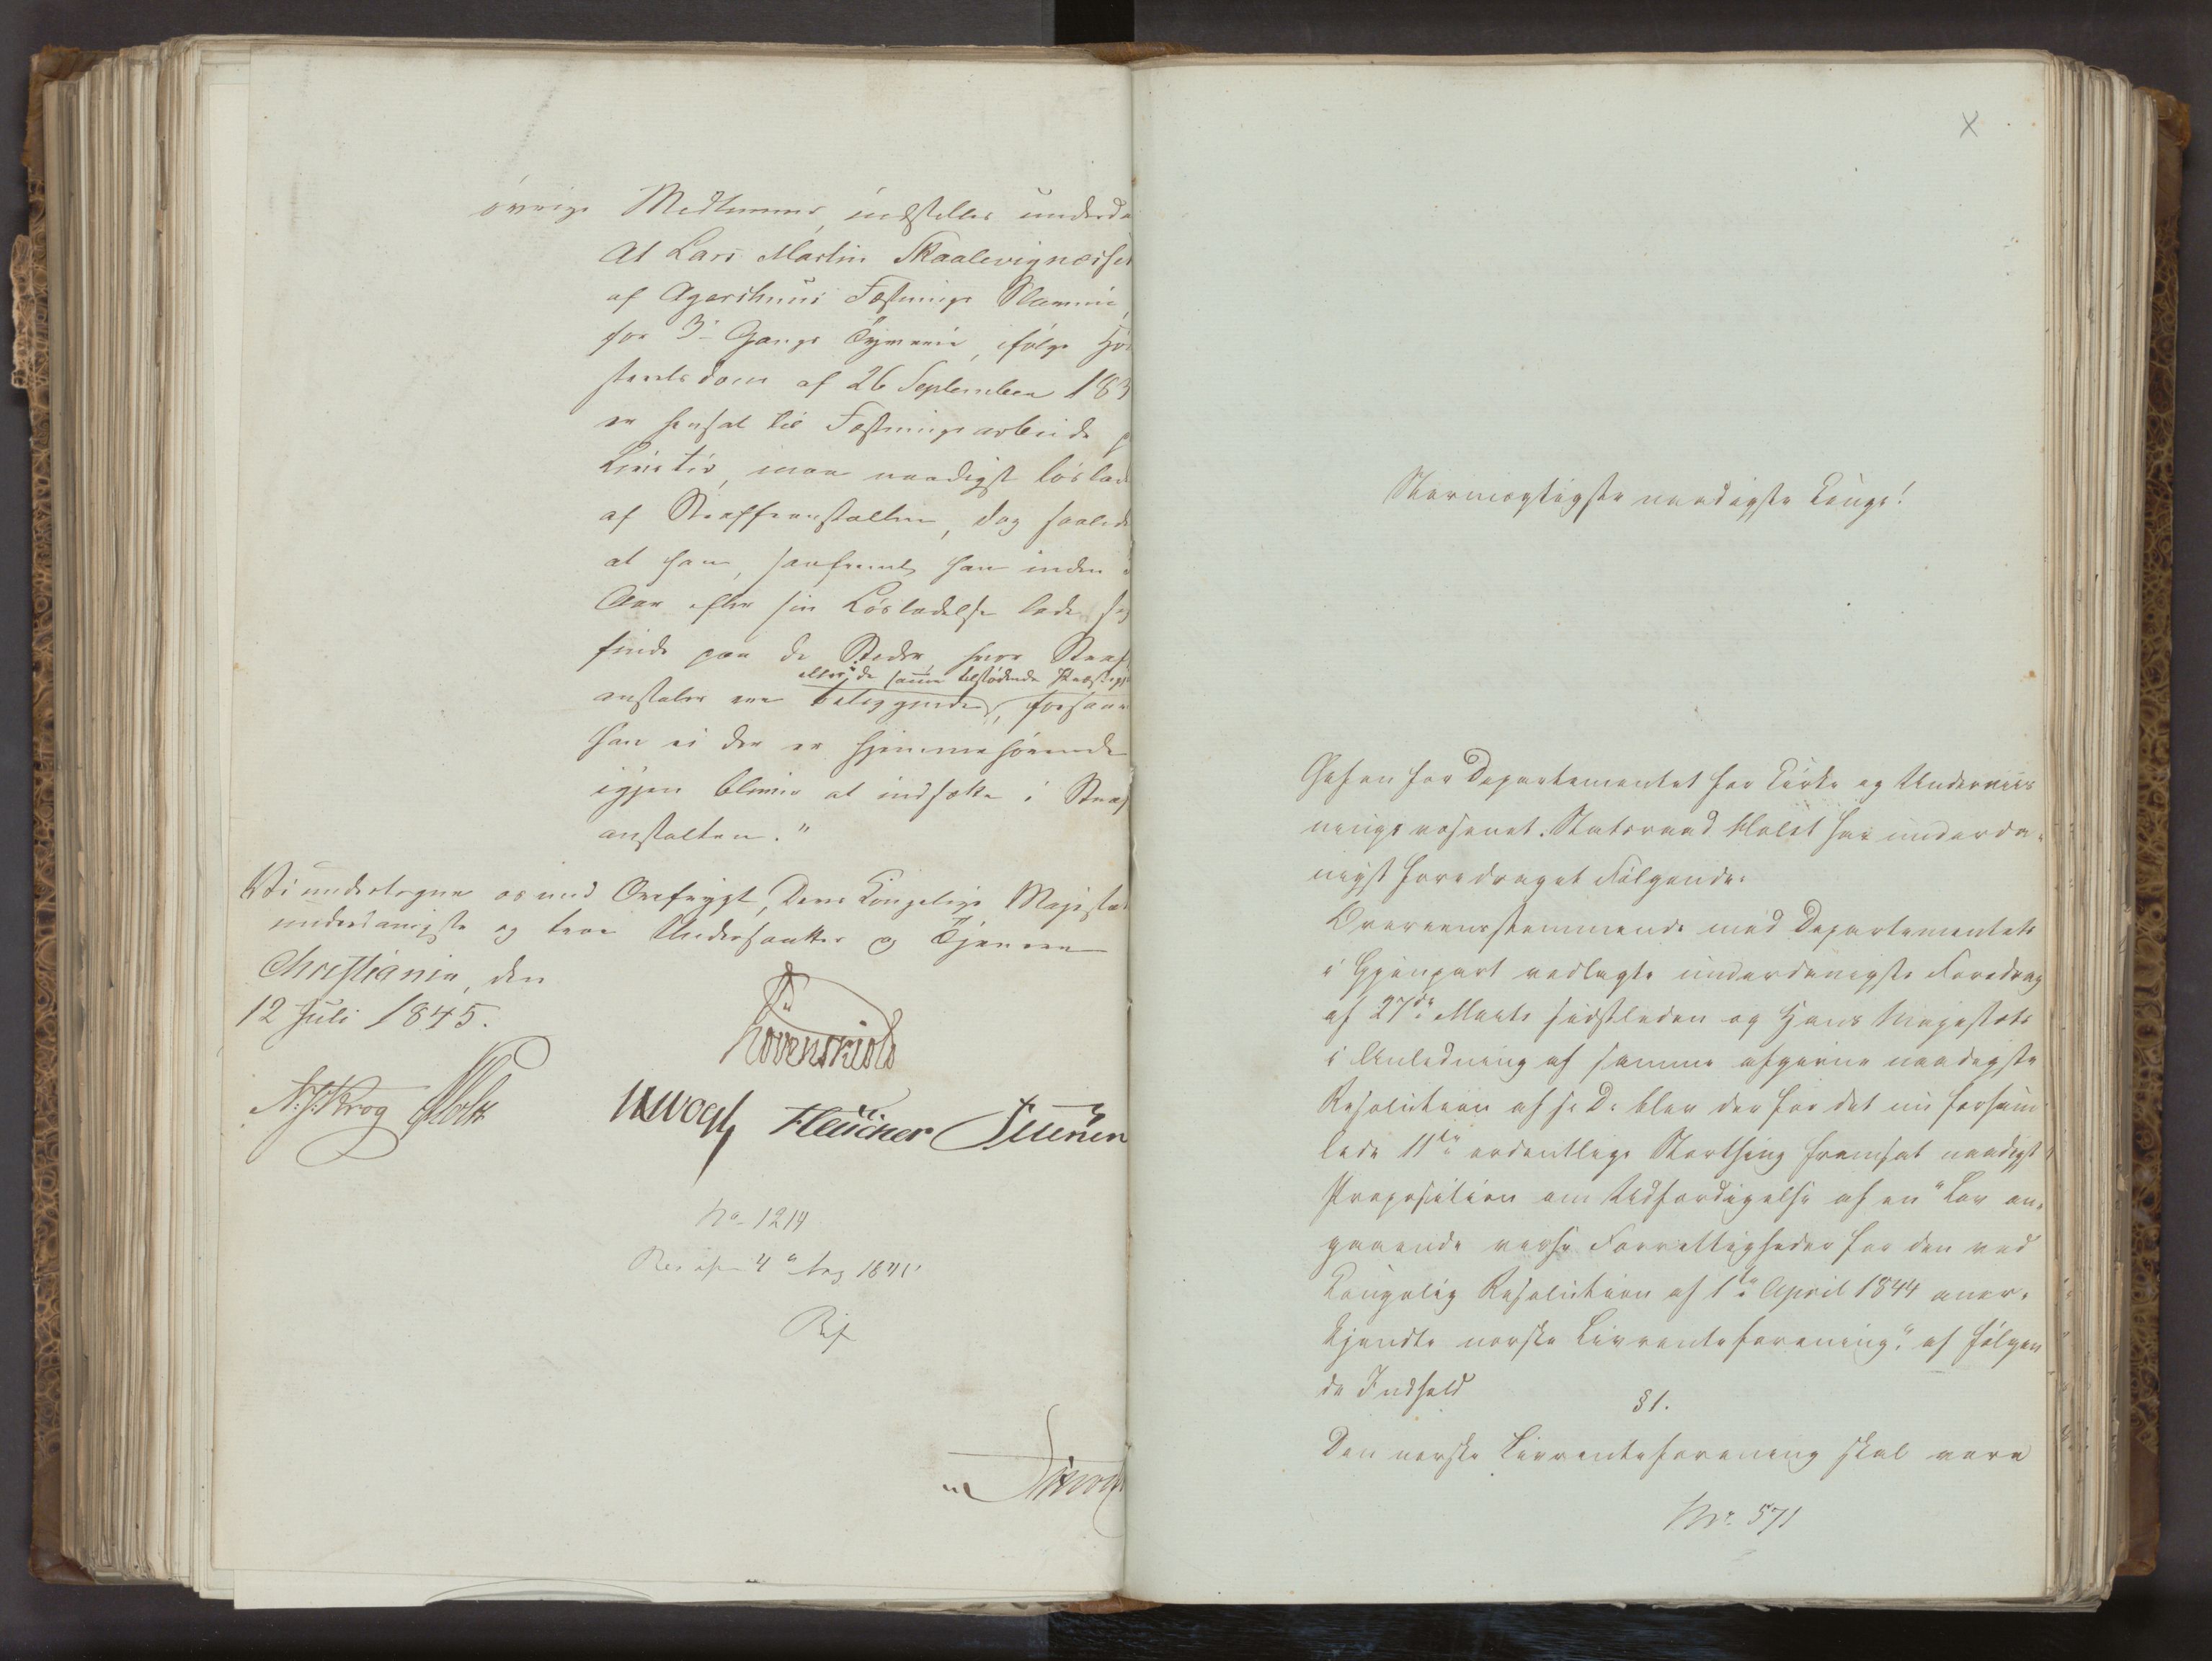 øvrige Medlemmer, indstilles underda
At Lars Martin Skaalevignæsset
af Agershuus Fæstnings Slaverie,
for 3die Gangs Tyverie, ifølge Høi
steretsdom af 26 September 183
er hensat til Fæstningsarbeide p
Livstid, maa naadigst løslad
af Straffeanstalten, dog saalede
at han, saafremt han inden
Aar efter sin Løsladelse lader sig
finde paa de Steder hvor Straf
eller i de samme tilstødende Præstegj
anstalter ere beliggende, forsaav
han ei der er hjemmehørende
igjen bliver at indsætte i Straf
anstalten."
Vi undertegne os med Ærefrygt, Deres Kongelige Majestæts
underdanigste og troe Undersaatter og Tjenere
Christiania, den
12 Juli 1845.
Løvenskiold
N: J: Krog Holst
JHVogt Fleischer Petersen
No 1214
Res af 4de Aug 1845
X
Stormægtigste naadigste Konge!
Chefen for Departementet for Kirke og Underviis
ningsvæsenet. Statsraad Holst har underda-
nigst foredraget Følgende:
Overeensstemmende med Departementets
i Gjenpart vedlagte underdanigste Foredrag
af 27de Marts sidstleden og Hans Majestæts
i Anledning af samme afgivne naadigste
Resolution af s: D: blev der for det nu forsam
lede 11te ordentlige Storthing fremsat naadigst
Proposition om Udfærdigelse af en "Lov an-
gaaende visse Forrettigheder for den ved
Kongelig Resolution af 1ste April 1844 aner-
kjendte norske Livrenteforening", af følgen
de Indhold
§1.
Den norske Livrenteforening skal være
No. 571